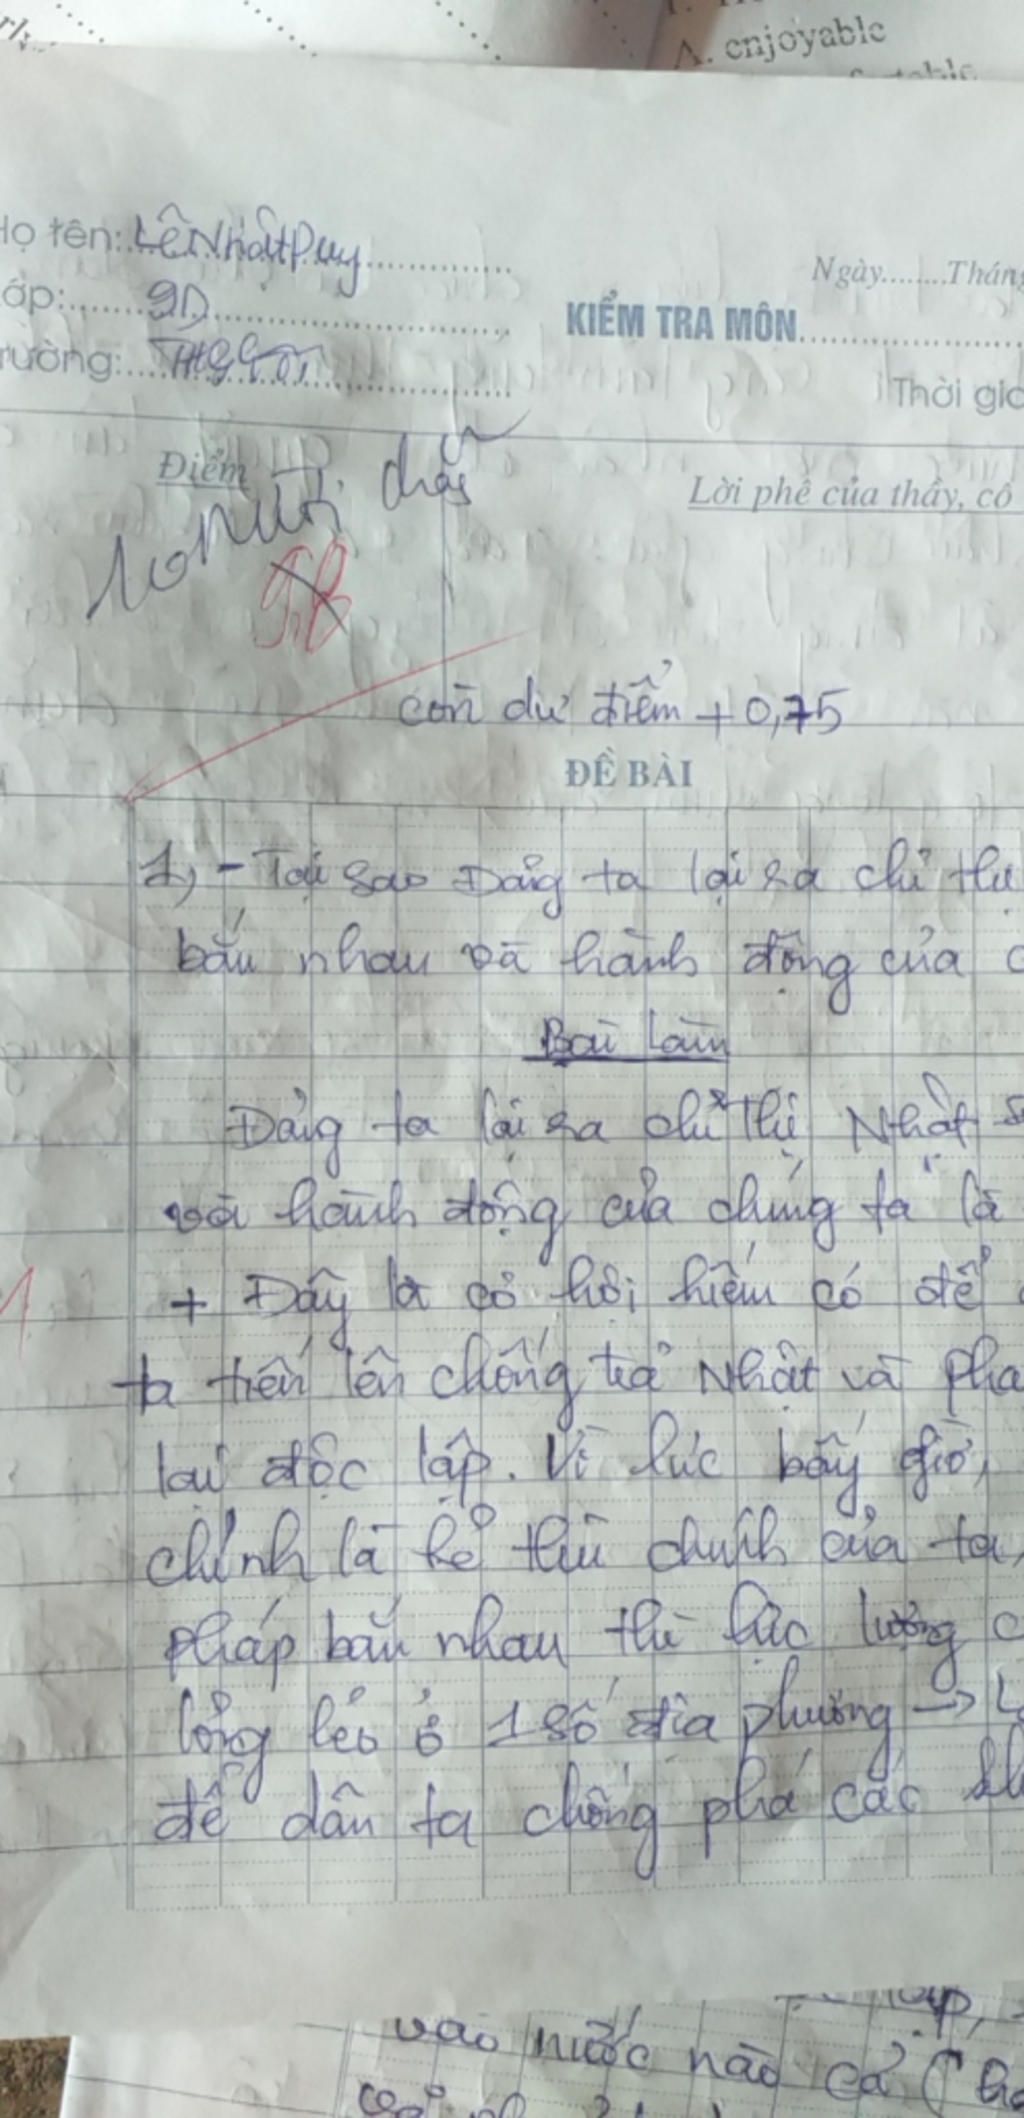 A. enjoyable
Họ tên: Lê Nhật Duy
Ngày........Tháng
Lớp: 9D
KIỂM TRA MÔN
Trường:
Thời gia
Điểm
Lời phê của thầy, cô
10 mười chấ
còn dư điểm + 0,75
ĐỀ BÀI
1) - Tại sao Đảng ta lại ra chỉ thị
bắn nhau và hành động của c
Bài làm
Đảng ta lại ra chỉ thị Nhật
và hành động của chúng ta" là
1 + Đây là cơ hội hiếm có để
ta tiến lên chống trả Nhật và Phá
lại độc lập. Vì lúc bấy giờ,
chính là kẻ thù chính của ta,
pháp bắn nhau thì lực lượng c
lỏng lẻo ở 1 số địa phương →
để dân ta chống phá các
vào nước nào cả (